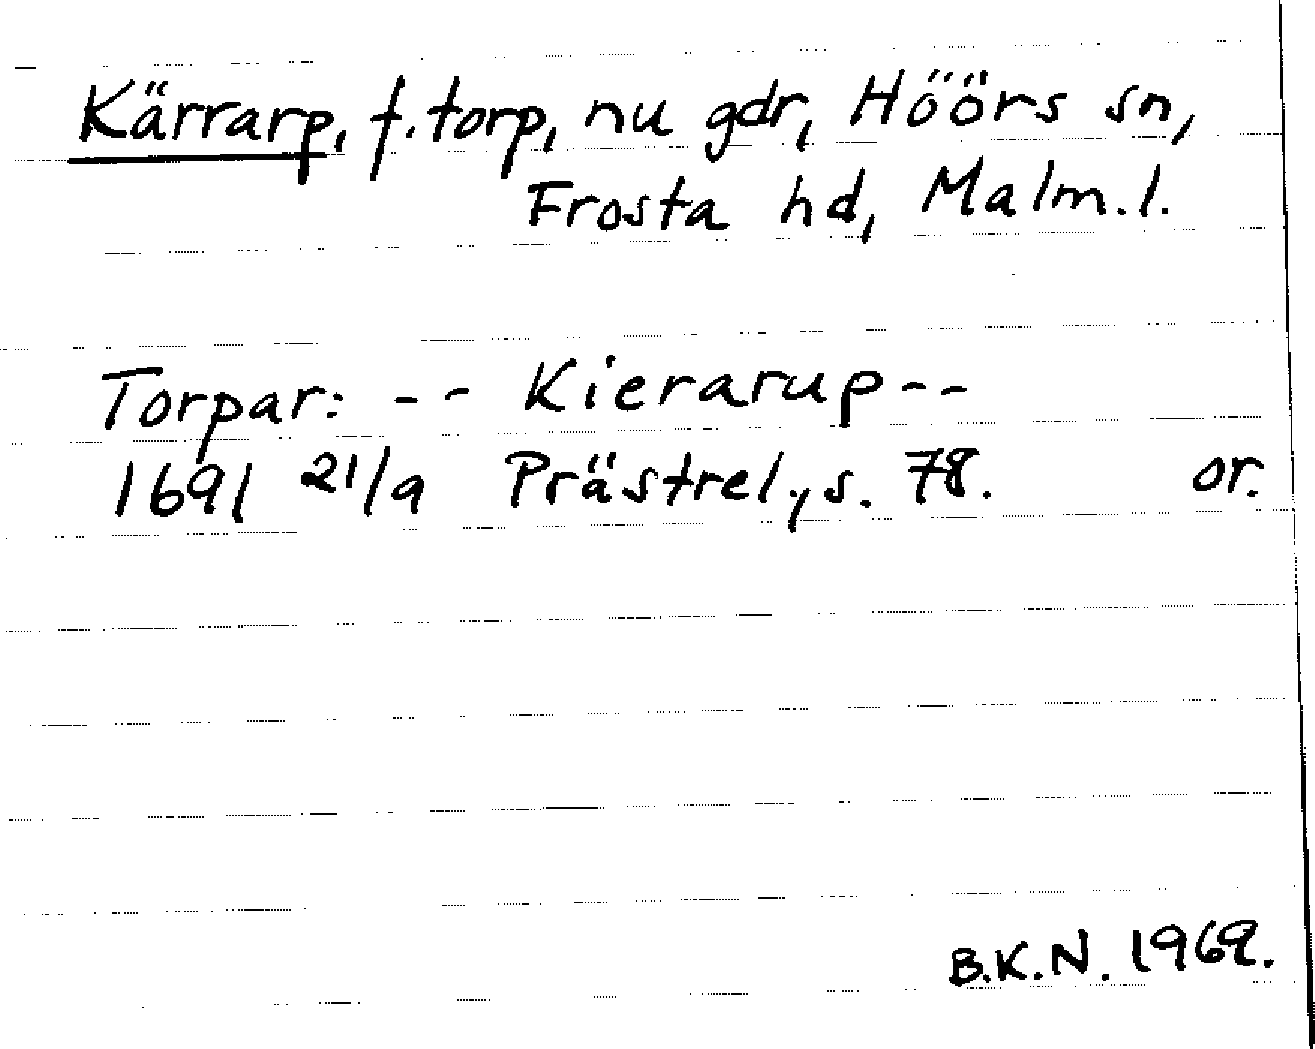 Kärrarp, f. torp, nu gdr, Höörs sn,
Frosta hd, Malm.l.
Torpar: -- Kierarup --
1691 21/9 Prästrel., s. 78. or.
B.K.N. 1969.